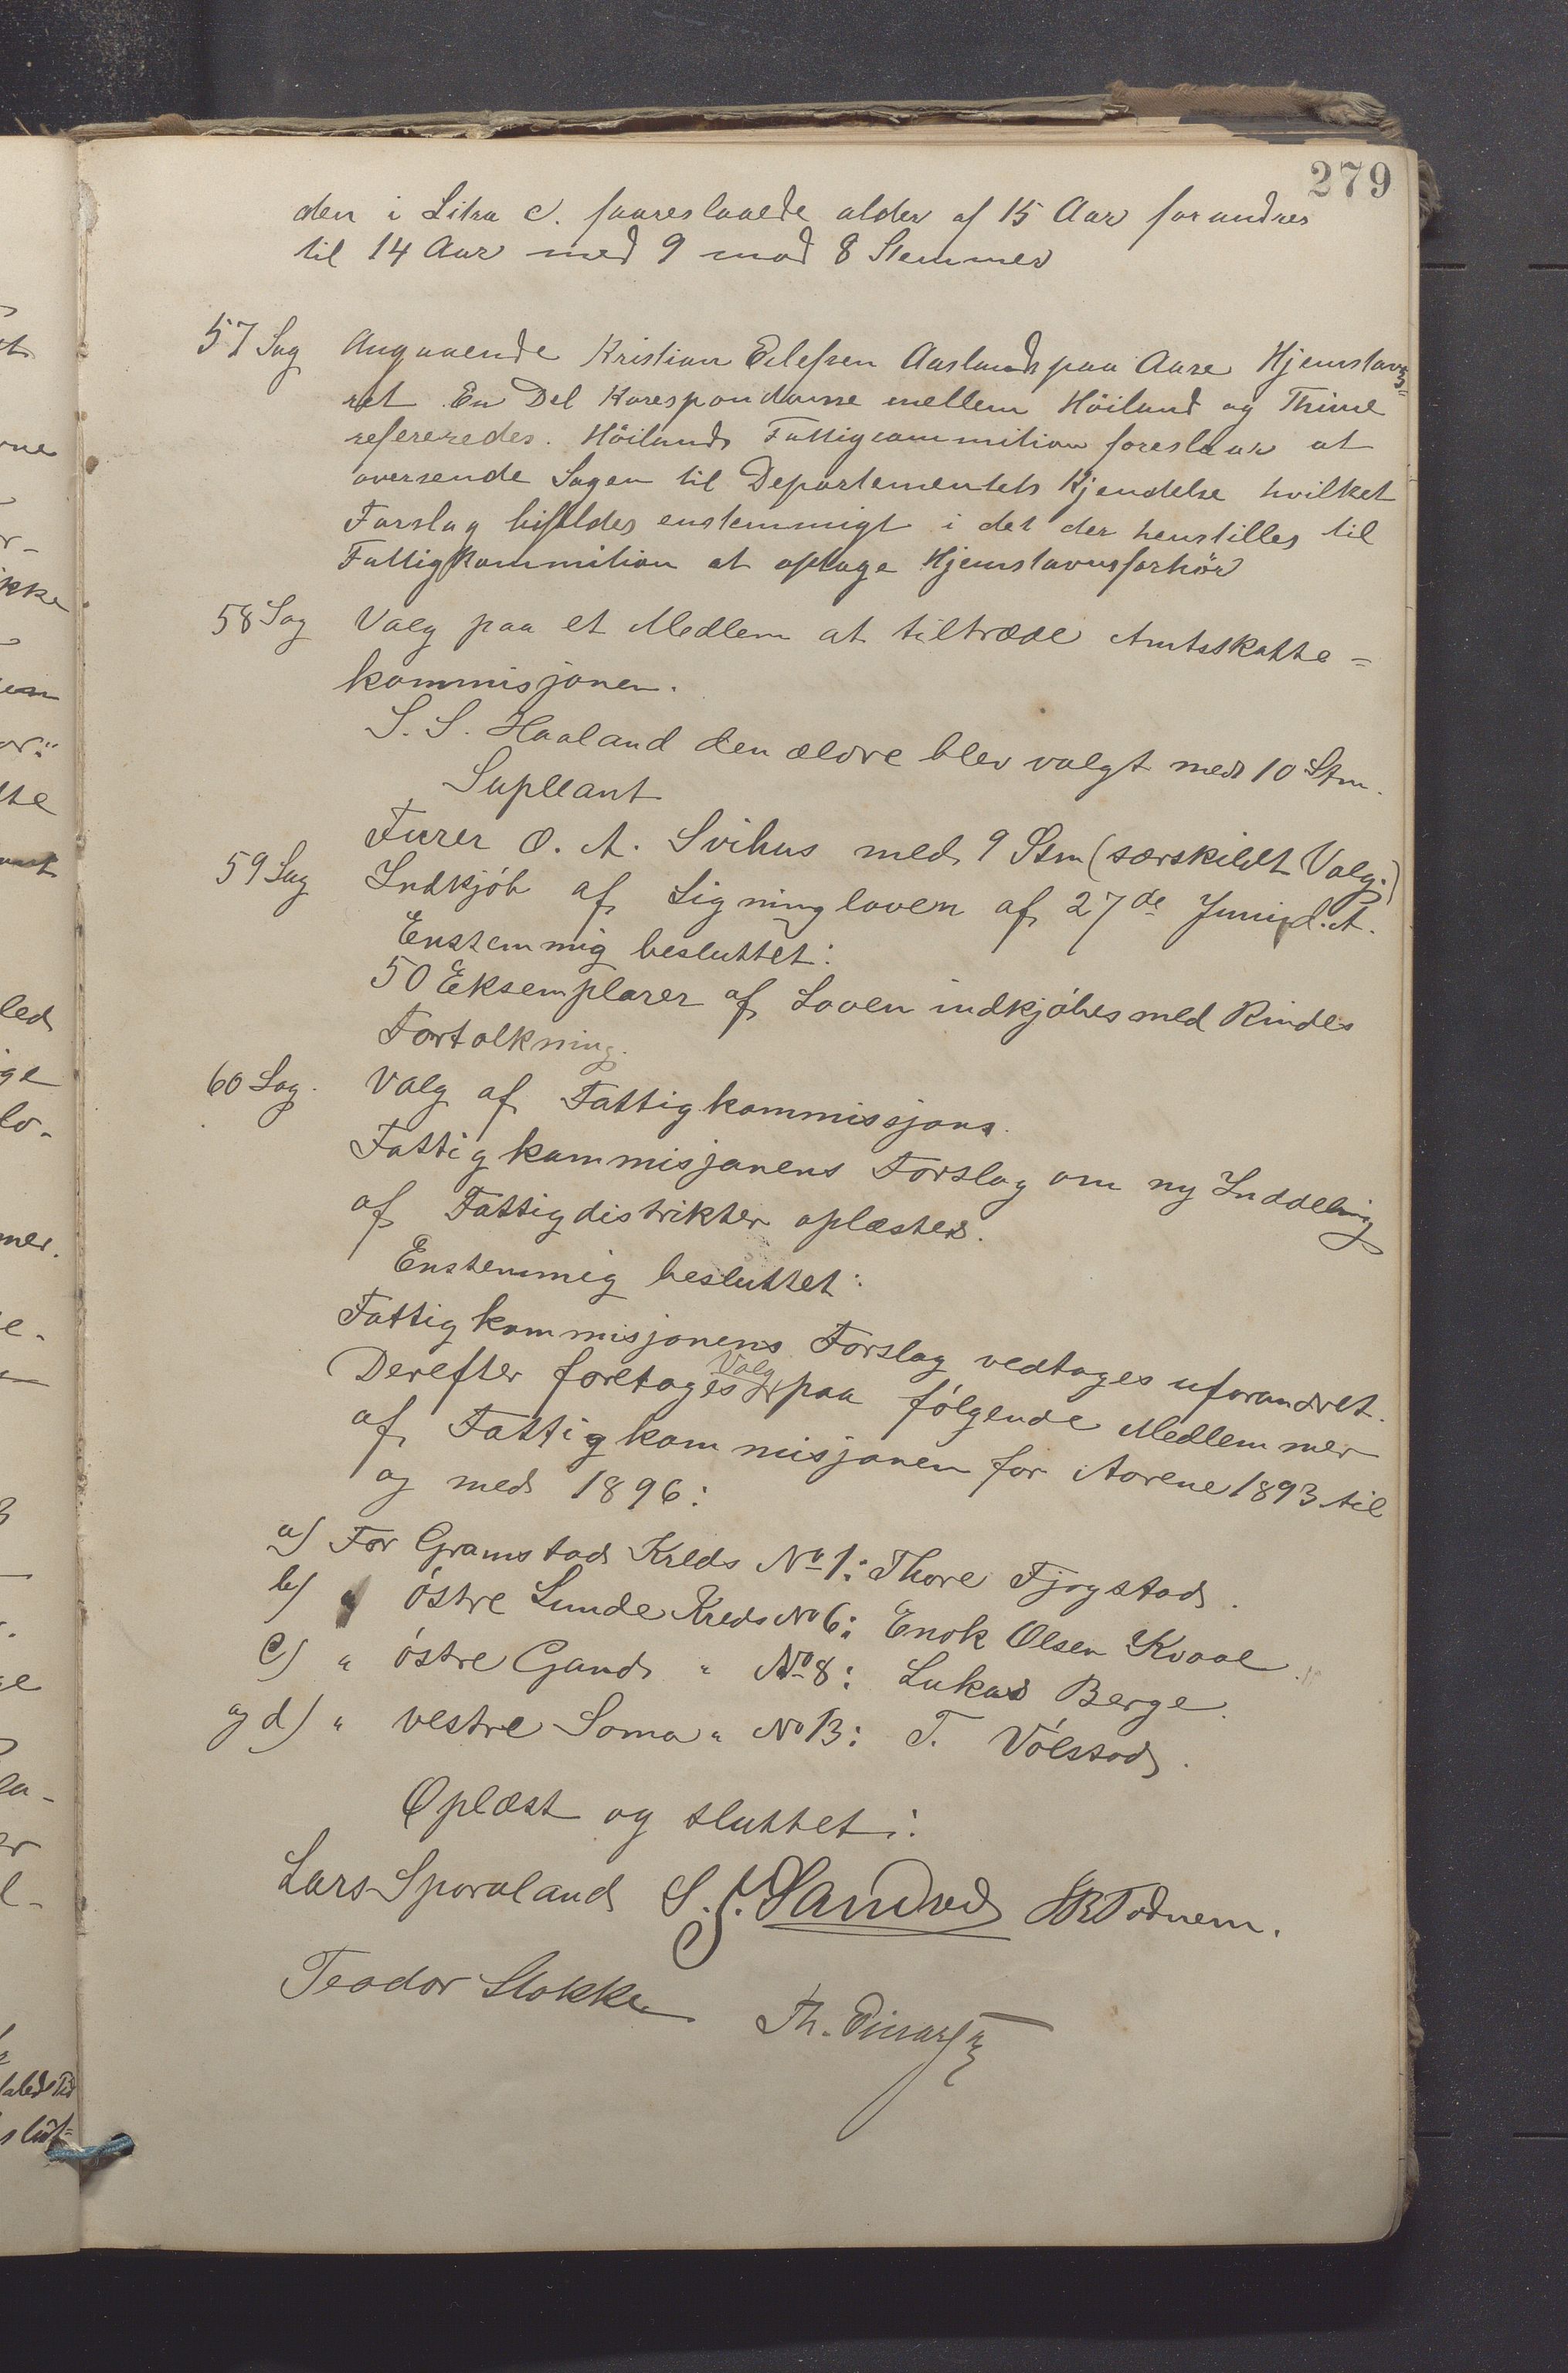 279
den i Litra c. faareslaaede alder af 15 Aar forandres
til 14 Aar med 9 mod 8 Stemmer
57 Sag Angaaende Kristian Eilefsen Aaslands paa Aare Hjemstavns=
ret En Del Korespondanse mellem Höiland og Thime
refereredes. Höilands Fattigcommition foreslaar at
oversende Sagen til Departementets Kjendelse hvilket
Forslag bifaldes enstemmigt i det der henstilles til
Fattigkommition at optage Hjemstavnsforhör
58 Sag Valg paa et Medlem at tiltræde Amtsskatte=
kommisjonen.
S. S. Haaland den ældre blev valgt med 10 Stm.
Supleant
Furer O. A. Svihus med 9 Stm (særskildt Valg.)
59 Sag Indkjöb af Ligningloven af 27de Juni d. A.
Enstemmig besluttet:
50 Eksemplarer af Loven indkjöbes med Rindes
Fortolkning.
60 Sag. Valg af Fattigkommissjons.
Fattigkommisjonens Forslag om ny Inddeling
af Fattigdistrikter oplæstes.
Enstemmig besluttet:
Fattigkommisjonens Forslag vedtages uforandret.
Derefter foretages Valg paa følgende Medlemmer
af Fattigkommisjonen for Aarene 1893 til
og med 1896:
a) For Gramstad Kreds No 1: Thore Fjogstad.
b) " östre Lunde Kreds No 6: Enok Olsen Kvaal
c) " östre Gand " No 8: Lukas Berge.
og d) " vestre Soma " No 13: T. Völstad.
Oplæst og sluttet:
Lars Sporaland S. S. Sandved Todnem.
Teodor Stokke Th.